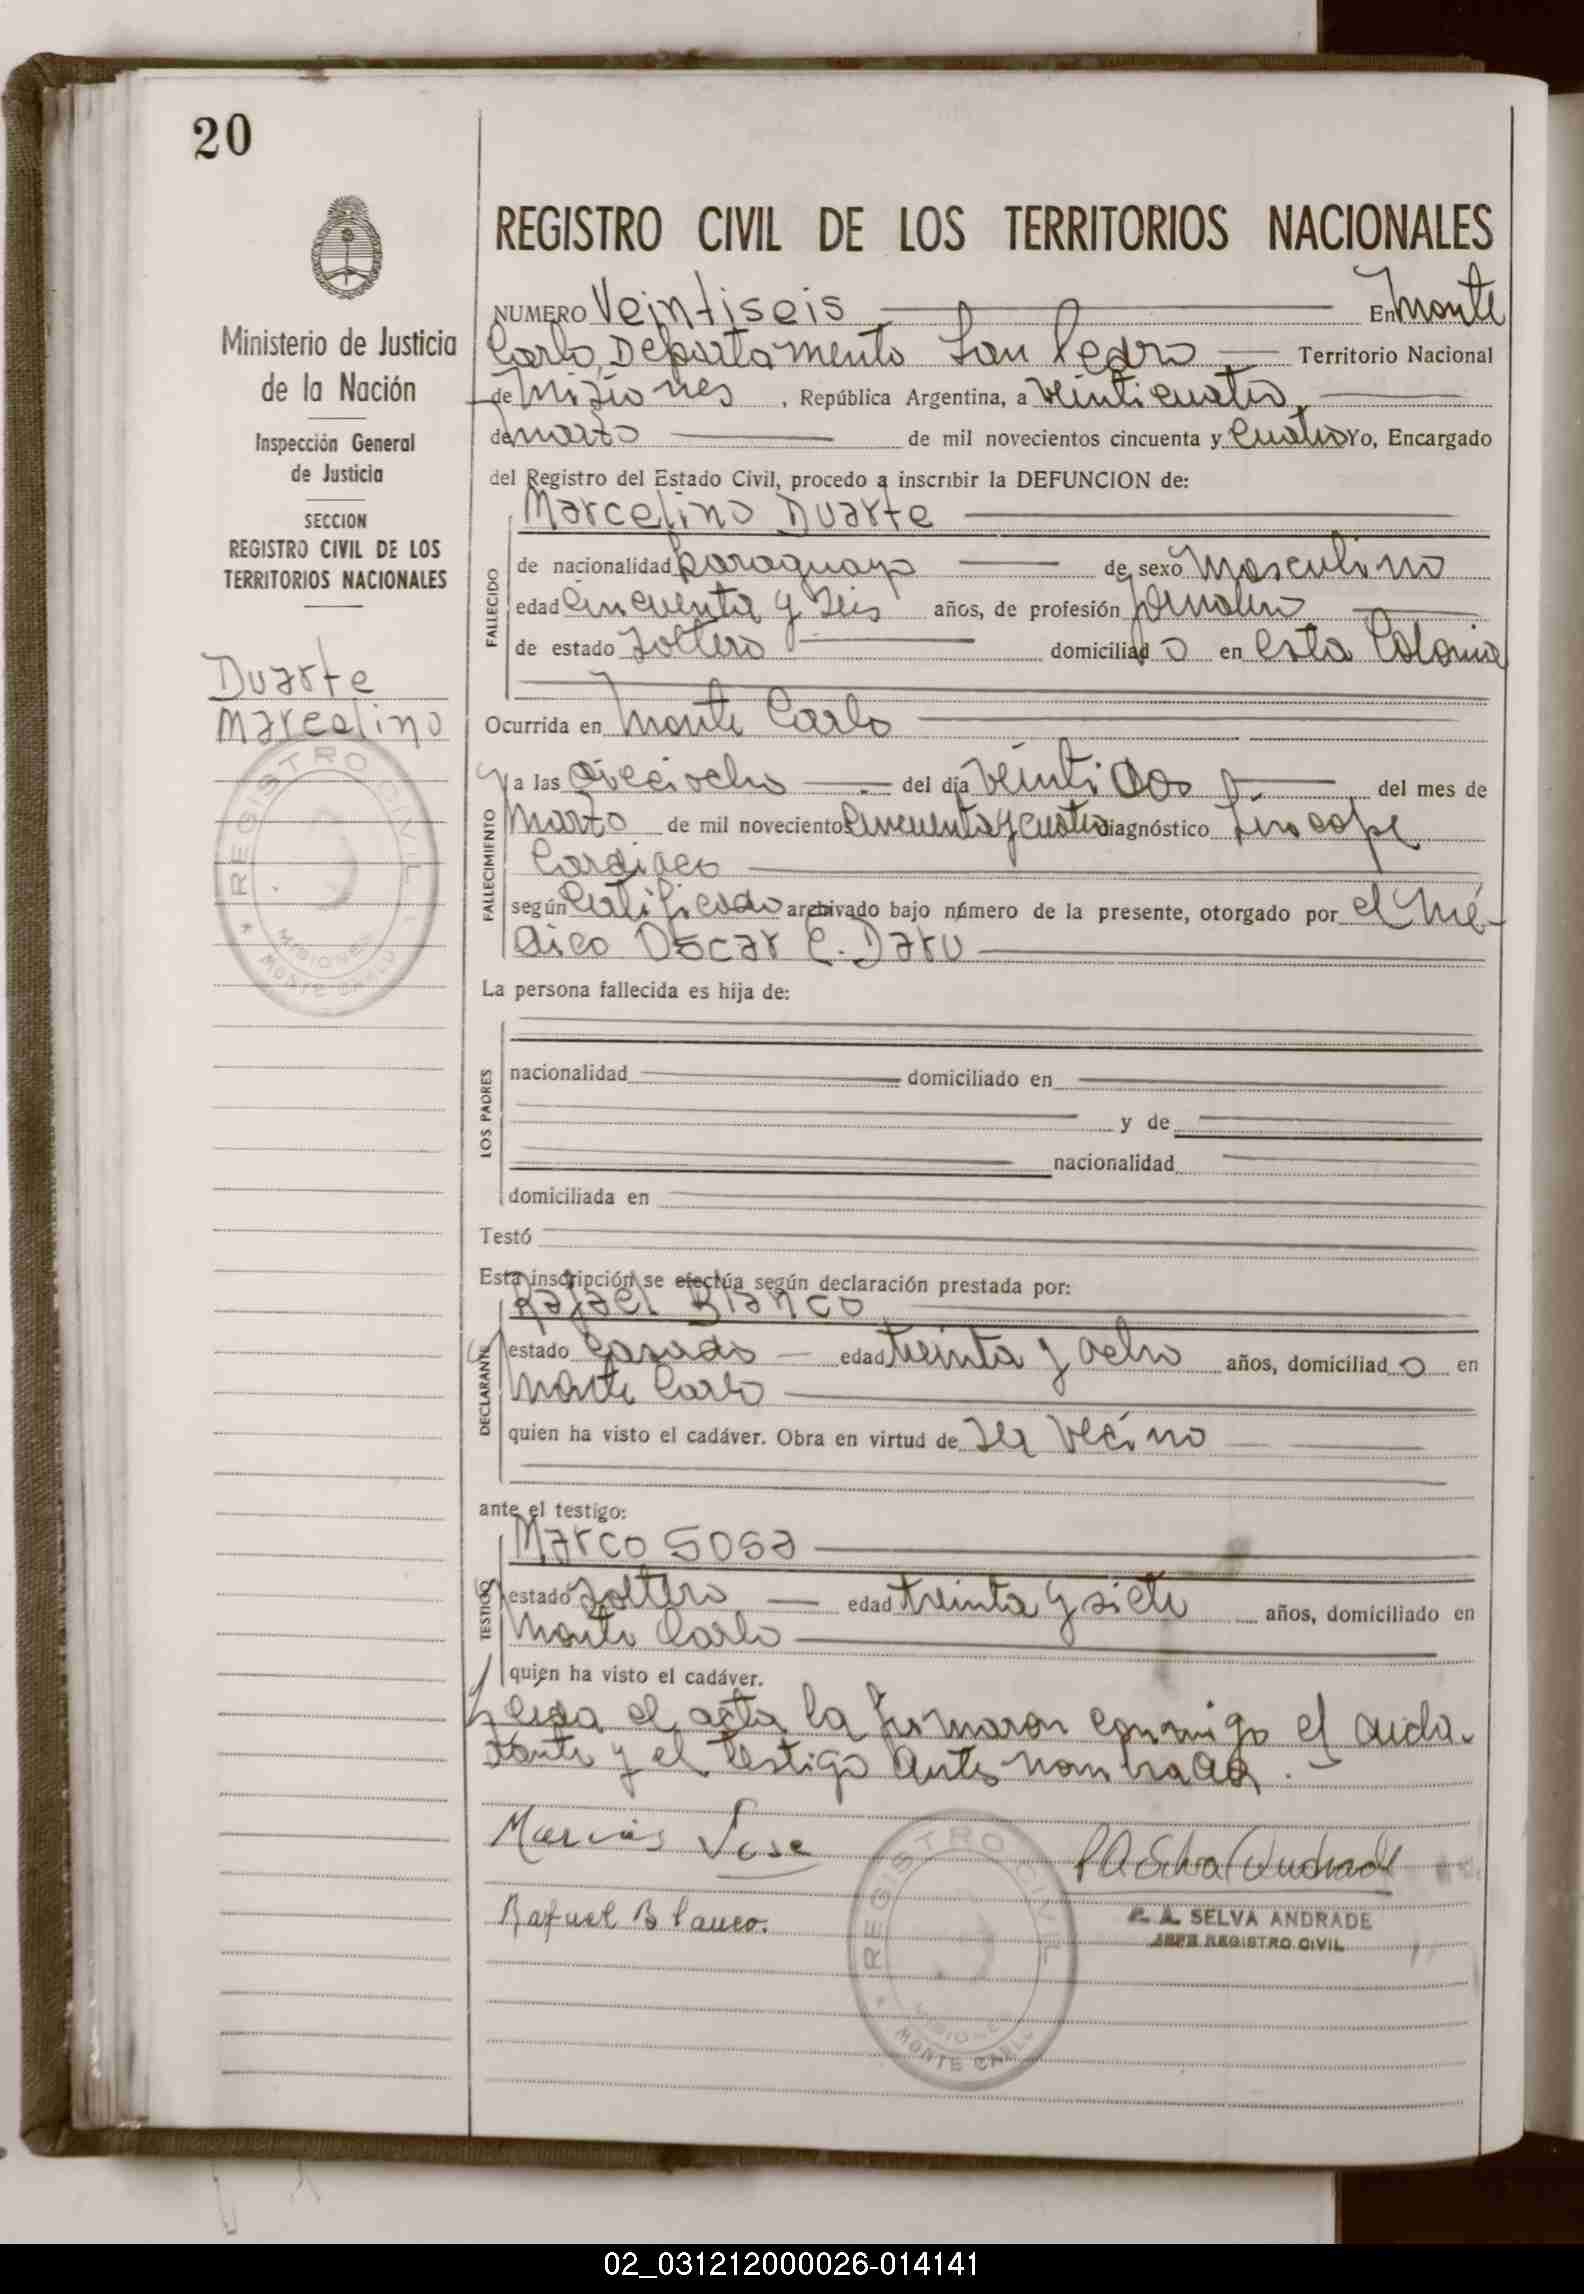 20
Ministerio de Justicia
de la Nación
Inspección General
de Justicia
SECCION
REGISTRO CIVIL DE LOS
TERRITORIOS NACIONALES
Duarte
Marcelino
REGISTRO CIVIL
MISIONES
MONTE CARLO
REGISTRO CIVIL DE LOS TERRITORIOS NACIONALES
NUMERO Veintiseis En Monte
Carlo, Departamento San Pedro Territorio Nacional
de Misiones, República Argentina, a veinticuatro,
de marzo de mil novecientos cincuenta y cuatro Yo, Encargado
del Registro del Estado Civil, procedo a inscribir la DEFUNCION de:
Marcelino Duarte
FALLECIDO
de nacionalidad paraguaya de sexo masculino
edad cincuenta y seis años, de profesión jornalero
de estado soltero domiciliado en esta Colonia
Ocurrida en Monte Carlo
FALLECIMIENTO
a las dieciocho del día veintidos del mes de
marzo de mil novecientos cincuenta y cuatro diagnóstico Sincope
Cardiaco
según certificado archivado bajo número de la presente, otorgado por el Mé-
dico Oscar C. Daru
La persona fallecida es hija de:
LOS PADRES
nacionalidad domiciliado en
y de
nacionalidad
domiciliada en
Testó
Esta inscripción se efectúa según declaración prestada por:
Rafael Blanco
DECLARANTE
estado casado edad treinta y ocho años, domiciliado en
Monte Carlo
quien ha visto el cadáver. Obra en virtud de ser vecino
ante el testigo:
Marco Sosa
TESTIGO
estado soltero edad treinta y siete años, domiciliado en
Monte Carlo
quien ha visto el cadáver.
Leida el acta la firmaron conmigo el decla-
rante y el testigo antes nombrados.
Marcos Sosa
P A Selva Andrade
Rafael Blanco.
P. A. SELVA ANDRADE
JEFE REGISTRO CIVIL
REGISTRO CIVIL
MISIONES
MONTE CARLO
02_031212000026-014141